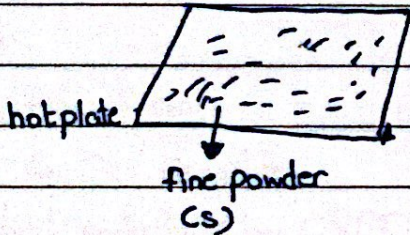 hotplate
fine powder
(s)